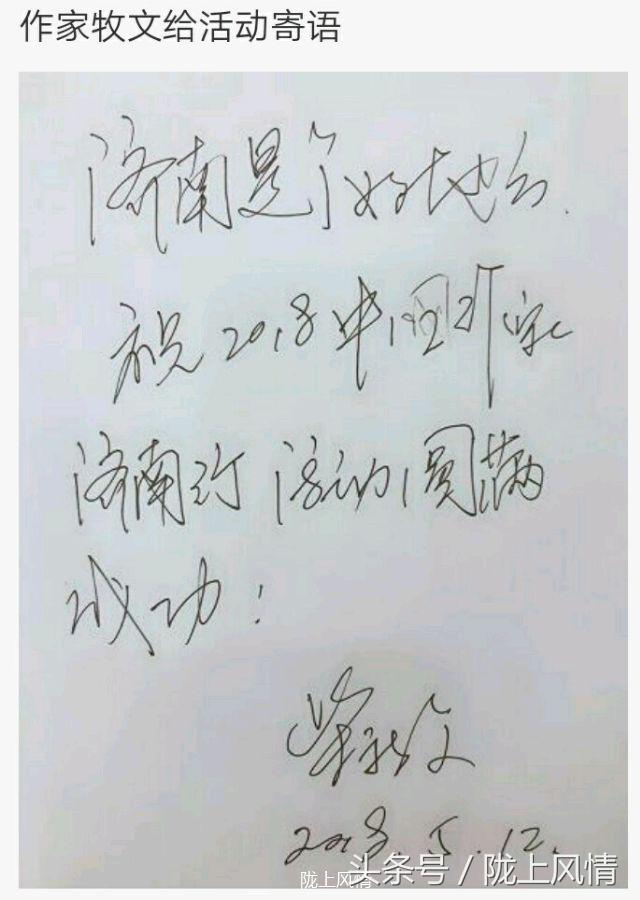 作家牧文给活动寄语
济南是个好地方.
祝2018中国
济南行活动圆满
成功!
文
2018.5.12.
陇上风情
头条号 / 陇上风情